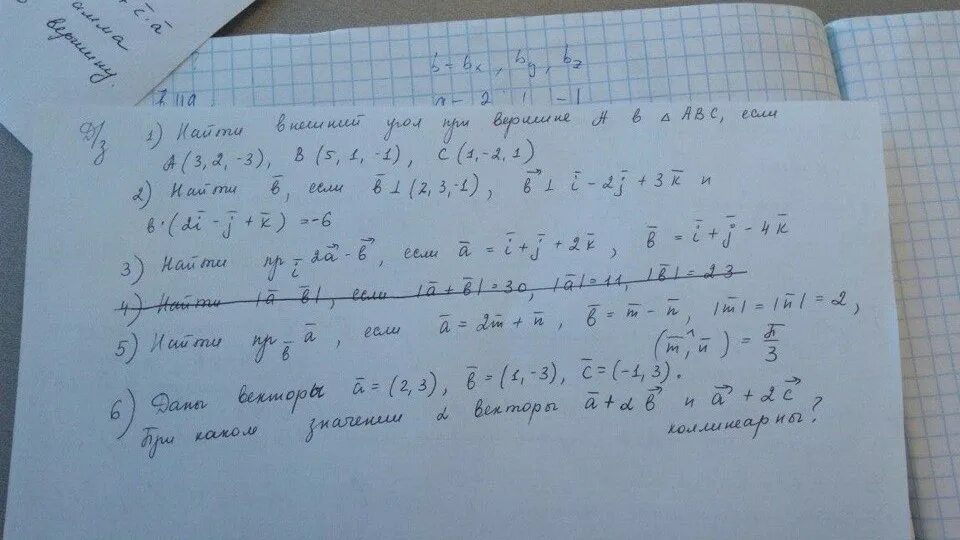 + c̄·ā
амма
вершину.
b – bx, by, bz
2 1 -1
Д/з
1) Найти внешний угол при вершине A в △ABC, если
A(3,2,-3), B(5,1,-1), C(1,-2,1)
2) Найти b̄, если b̄⊥(2,3,-1), b⃗⊥ ī-2j̄+3k̄ и
b·(2ī-j̄+k̄)=-6
3) Найти пр_ī 2a⃗-b⃗, если ā=ī+j̄+2k̄, b̄=ī+j̄-4k̄
4) Найти |ā b̄|, если |ā+b̄|=30, |ā|=11, |b̄|=23
5) Найти пр_b̄ ā, если ā=2m̄+n̄, b̄=m̄-n̄, |m̄|=|n̄|=2,
(m̄,^n̄)=π/3
6) Даны векторы ā=(2,3), b̄=(1,-3), c̄=(-1,3).
При каком значении α векторы ā+αb⃗ и a⃗+2c⃗
коллинеарны?